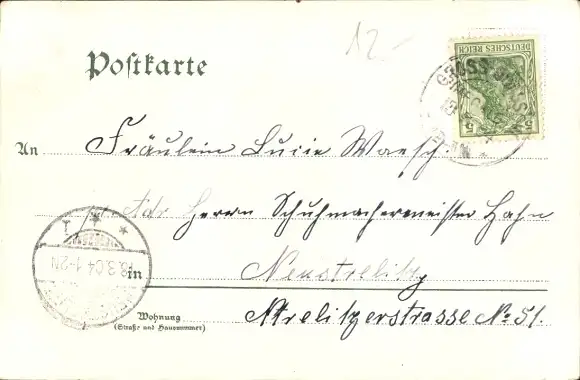 12-
Postkarte
DEUTSCHES REICH
5 5
GROSS
An Fräulein Lucie Waesch
Adr Herrn Schuhmachermeister Hahn
18.3.04 1-2N
in Neustrelitz
Wohnung
(Straße und Hausnummer)
Strelitzerstrasse No. 51.